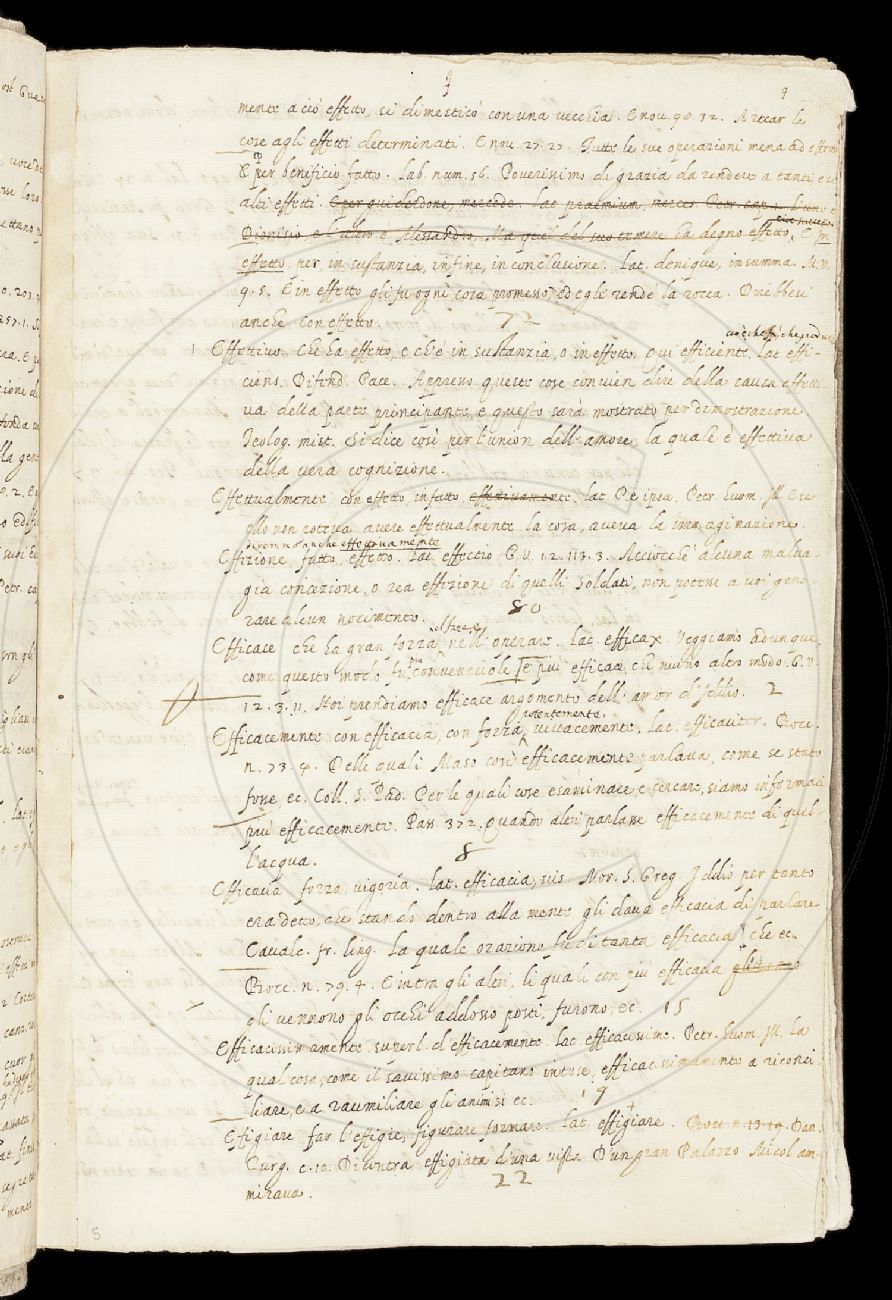 9
mente a ciò effetto, si dimesticò con una vecchia. E nou. 90. 32. Arrecar le
cose agli effetti determinati. E nou. 27. 27. Tutte le sue operazioni mena ad effetto
E per beneficio fatto. Lab. num. 56. Poverissimo di grazia da rendere a tanti, e sì
alti effetti. E per guiderdone, mercede. Lat. praemium, merces Petr. cap. L'uno è
Dionisio e l'altro è Alessandro. Ma quel del suo temere ha degno effetto, E in
effetto. per in sustanzia, in fine, in conclusione. Lat. denique, in summa. M. V.
9. 5. E in effetto gli fu ogni cosa promesso, ed egli rendé la rocca. Direbbesi
anche con effetto. 72
Effettivo. Che ha effetto, e ch'è in sustanzia, o in effetto. qui efficiente. lat. effi-
ciens. Difend. Pace. Appresso queste cose convien dire della causa effetti
va della parte principante, e questo sarà mostrato per dimostrazione
Teolog. mist. Si dice così per l'union dell'amore, la quale è effettiva
della vera cognizione.
Effettualmente con effetto, in fatto effettivamente. lat. Re ipsa. Petr. Huom. Ill. E se
ello non poteva avere effettualmente la cosa, aveva la immaginazione.
diremmo anche effettivamente
Effizione fatto, effetto. Lat. effectio G. V. 12. 113. 3. Acciocchè alcuna malva-
gia concezione, o rea effizione di quelli soldati, non potesse a voi gene-
rare alcun nocimento. 80
Efficace che ha gran forza nell'operare. lat. efficax. Veggiamo adunque,
come questo modo fu più convenevole e più efficace, che nullo altro modo. G. V.
12. 3. 11. Noi prendiamo efficace argomento dell'amor d'Iddio. 2
potentemente
Efficacemente con efficacia, con forza, vivacemente. lat. efficaciter. Bocc.
n. 73. 4. Delle quali Maso così efficacemente parlava, come se stato
fosse, ec. Coll. S. Pad. Per le quali cose esaminare, e cercare, siamo informati
più efficacemente. Pass. 372. Quando altri parlasse efficacemente di quel-
l'acqua. 8
Efficacia forza, vigoria. lat. efficacia, vis Mor. S. Greg. Iddio per tanto
era detto, che stando dentro alla mente gli dava efficacia di parlare
Cavalc. fr. ling. La quale orazione fu di tanta efficacia, che ec.
Bocc. n. 79. 4. E intra gli altri, li quali con più efficacia
gli vennono gli occhi addosso posti, furono, ec. 15
Efficacissimamente superl. d'efficacemente. lat. efficacissime. Petr. Huom. Ill. La
qual cosa, come il savissimo capitano intese, efficacissimamente a riconci-
liare, e a raumiliare gli animi si ec. 19
Effigiare far l'effigie, figurare formare. Lat. effigiare. Dan.
Purg. c. 10. Di contra effigiata d'una vista D'un gran Palazzo Micol am-
mirava. 22
5